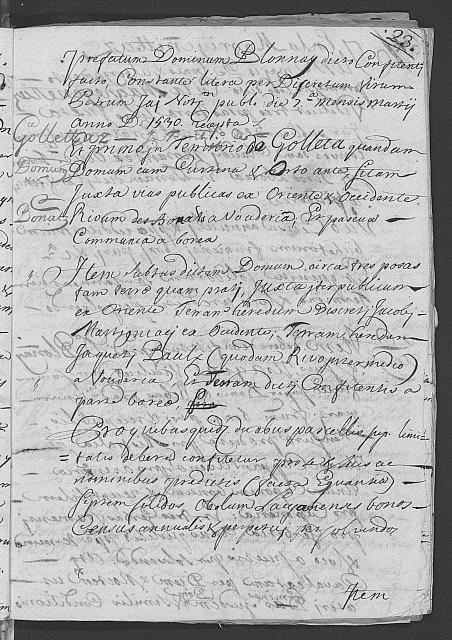 .23.
prefatum Dominum Blonnay dicto Confitenti
facto Constante litera per Discretum Virum
Petrum Jaj Nott^m publ: die 7^a mensis Martij
Anno D^i 1530. recepta
Gollettaz
Et primo in Territorio de Golleta quandam
Domum
Domum cum Curtina & Orto ante sitam
Juxta vias publicas ex Oriente & Occidente
Donat
Rivum des Bonats a Vouderia, Et pascua
Communia a borea
Item subtus dictam Domum circa tres posas
tam terre quam prati Juxta iter publicum
ex Oriente Terram heredum Discreti Jacobi
ea Occidente, Terram heredum
Jaqueti Baulx (quodam Rivo intermedio)
a Vouderia, Et Terram dicti Confitentis a
parte boree,
Pro quibusquidem duabus parcellis sup. limi-
=tatis debere confitetur pro se & suis ac
nominibus predictis (facta Equantia)
Septem solidos Obolum Lausanensis bonos
Census annualis & perpetui, solvendos
Item